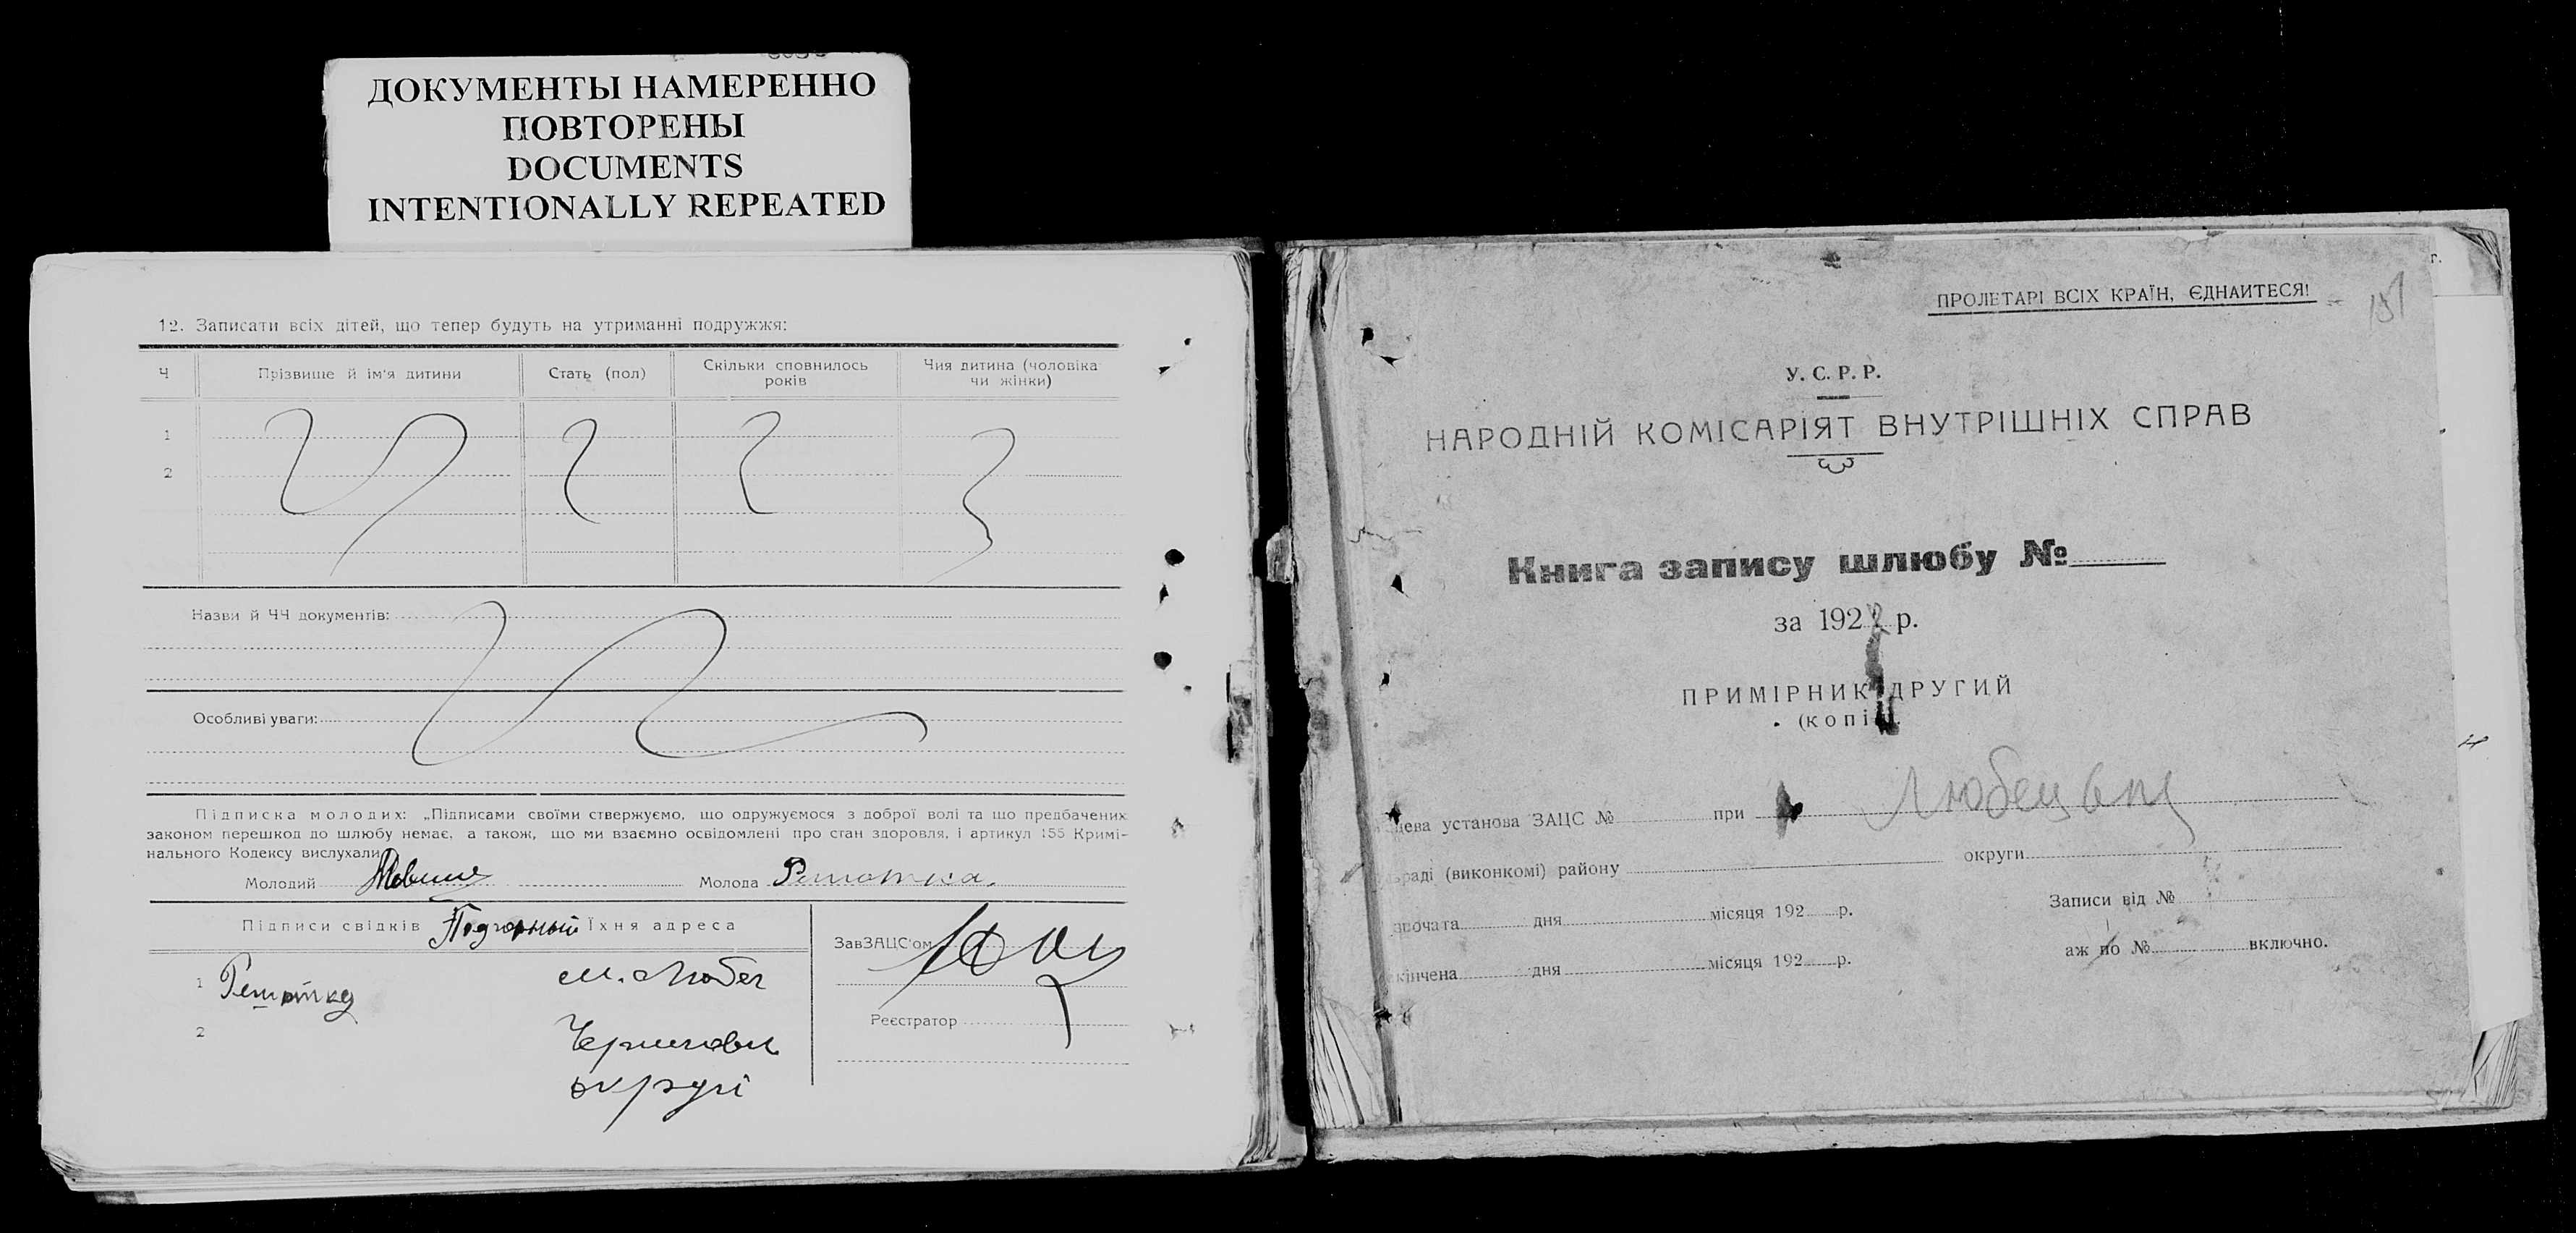 ДОКУМЕНТЫ НАМЕРЕННО
ПОВТОРЕНЫ
DOCUMENTS
INTENTIONALLY REPEATED
12. Записати всіх дітей, що тепер будуть на утриманні подружжя:
Ч Прізвище й ім'я дитини Стать (пол) Скільки сповнилось років Чия дитина (чоловіка чи жінки)
1
2
Назви й ЧЧ документів:
Особливі уваги:
Підписка молодих: „Підписами своїми ствержуємо, що одружуємося з доброї волі та що предбачених
законом перешкод до шлюбу немає, а також, що ми взаємно освідомлені про стан здоровля, і артикул 155 Кримі-
нального Кодексу вислухали
Молодий Молода Решотка.
Підписи свідків Подгорный Їхня адреса
ЗавЗАЦС'ом
1 Решотка м. Любеч
2 Черниговск.
округі
Реєстратор
ПРОЛЕТАРІ ВСІХ КРАЇН, ЄДНАЙТЕСЯ!
151
У. С. Р. Р.
НАРОДНІЙ КОМІСАРІЯТ ВНУТРІШНІХ СПРАВ
Книга запису шлюбу №
за 192 р.
ПРИМІРНИК ДРУГИЙ
(копі
цева установа ЗАЦС № при Любецькій
раді (виконкомі) району округи
почата дня місяця 192 р. Записи від №
кінчена дня місяця 192 р. аж по № включно.